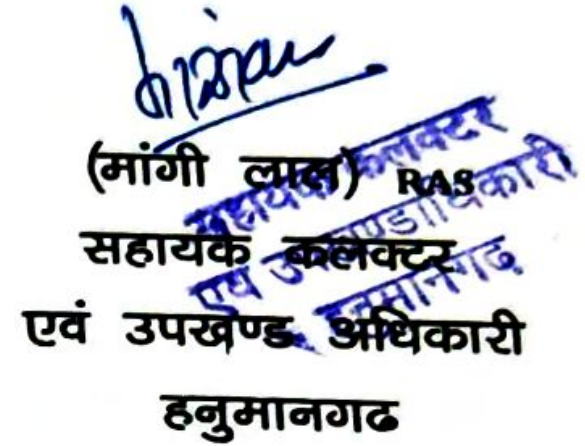 (मांगी लाल) RAS
सहायक कलक्टर
एवं उपखण्ड अधिकारी
हनुमानगढ
सहायक कलक्टर
एवं उपखण्डाधिकारी
हनुमानगढ़